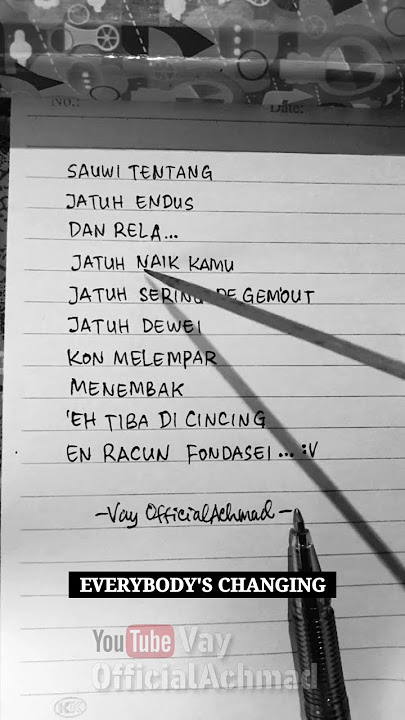 No.:
Date:
SAUWI TENTANG
JATUH ENDUS
DAN RELA...
JATUH NAIK KAMU
JATUH SERING DE GEM'OUT
JATUH DEWEI
KON MELEMPAR
MENEMBAK
'EH TIBA DI CINCING
EN RACUN FONDASEI ... :V
-Vay OfficialAchmad-
EVERYBODY'S CHANGING
YouTube Vay
OfficialAchmad
KK